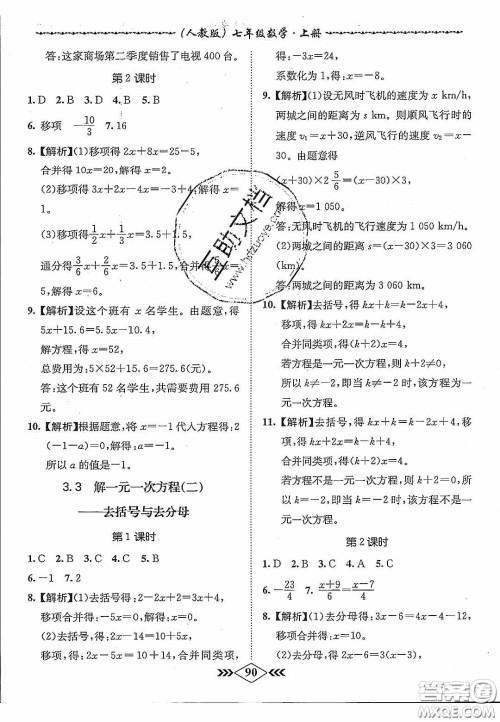 (人教版) 七年级数学·上册
答:这家商场第二季度销售了电视 400 台.
第 2 课时
1. D 2. B 3. D 4. B 5. B
6. 移项 -10/3 7. 16
8. 【解析】(1)移项得 2x+8x=25-5,
合并得 10x=20, 解得 x=2.
(2)移项得 3x+2x=-4-3x=
(3)移项得 1/2x+1/3x=3.5+1.5,
通分得 3/6x+2/6x=5, 合并得 5/6x=
5, 解得 x=6.
9. 【解析】设这个班有 x 名学生. 由题意, 得
5x+15.6=5.3x,
解方程, 得 x=52,
总费用为: 5×52+15.6=275.6(元).
答:这个班有 52 名学生, 共需费用 275.6
元.
10. 【解析】根据题意, 将 x=-1 代入方程得: 2
(-1-a)=0, 解得: a=-1.
所以 a 的值是-1.
3.3 解一元一次方程(二)
——去括号与去分母
第 1 课时
1. C 2. B 3. C 4. D 5. C
6. -1 7. 2
8. 【解析】(1)去括号得: 2-2x+2=3x+4,
移项合并得: -5x=0, 解得: x=0.
(2)去括号得: 2x-4-12x+3=9-9x,
移项得: 2x-12x+9x=10, 合并同类项,
得: -3x=24,
系数化为 1, 得: x=-8.
9. 【解析】(1)设无风时飞机的速度为 x km/h,
两城之间的距离为 s km. 则顺风飞行的
速度 v₁=x+30, 逆风飞行的速度 v₂=x-
30. 由题意得
(x+30)×2 5/6=(x-30)×3,
解得 x=1 050.
答:无风时飞机的速度为 1 050 km/h.
(2)两城之间的距离 s=(x-30)×3=3 060
(km).
答:两城之间的距离为 3 060 km.
10. 【解析】去括号, 得 kx+k=-2x+4,
移项, 得 kx+2x=4-k,
合并同类项, 得 (k+2)x=4-k,
若方程是一元一次方程, 得 k+2≠0,
解得 k≠-2.
11. 【解析】去括号, 得 kx+k=k-2x-4, 移
项, 得 kx+2x=k-4-k,
合并同类项, 得 (k+2)x=-4,
若方程无解, 则 k+2=0, 解得 k=-2.
第 2 课时
1. D 2. A 3. B 4. C 5. D
6. -23/4 7. (x+9)/6=(x-7)/4
8. 【解析】(1)去分母得: 3x-6=2x,
移项合并得: x=6.
(2)去分母, 得 6x-3(x-1)=12-2(x+
90
互助文档
www.hdzuoye.com
答案圈
MXQE.COM